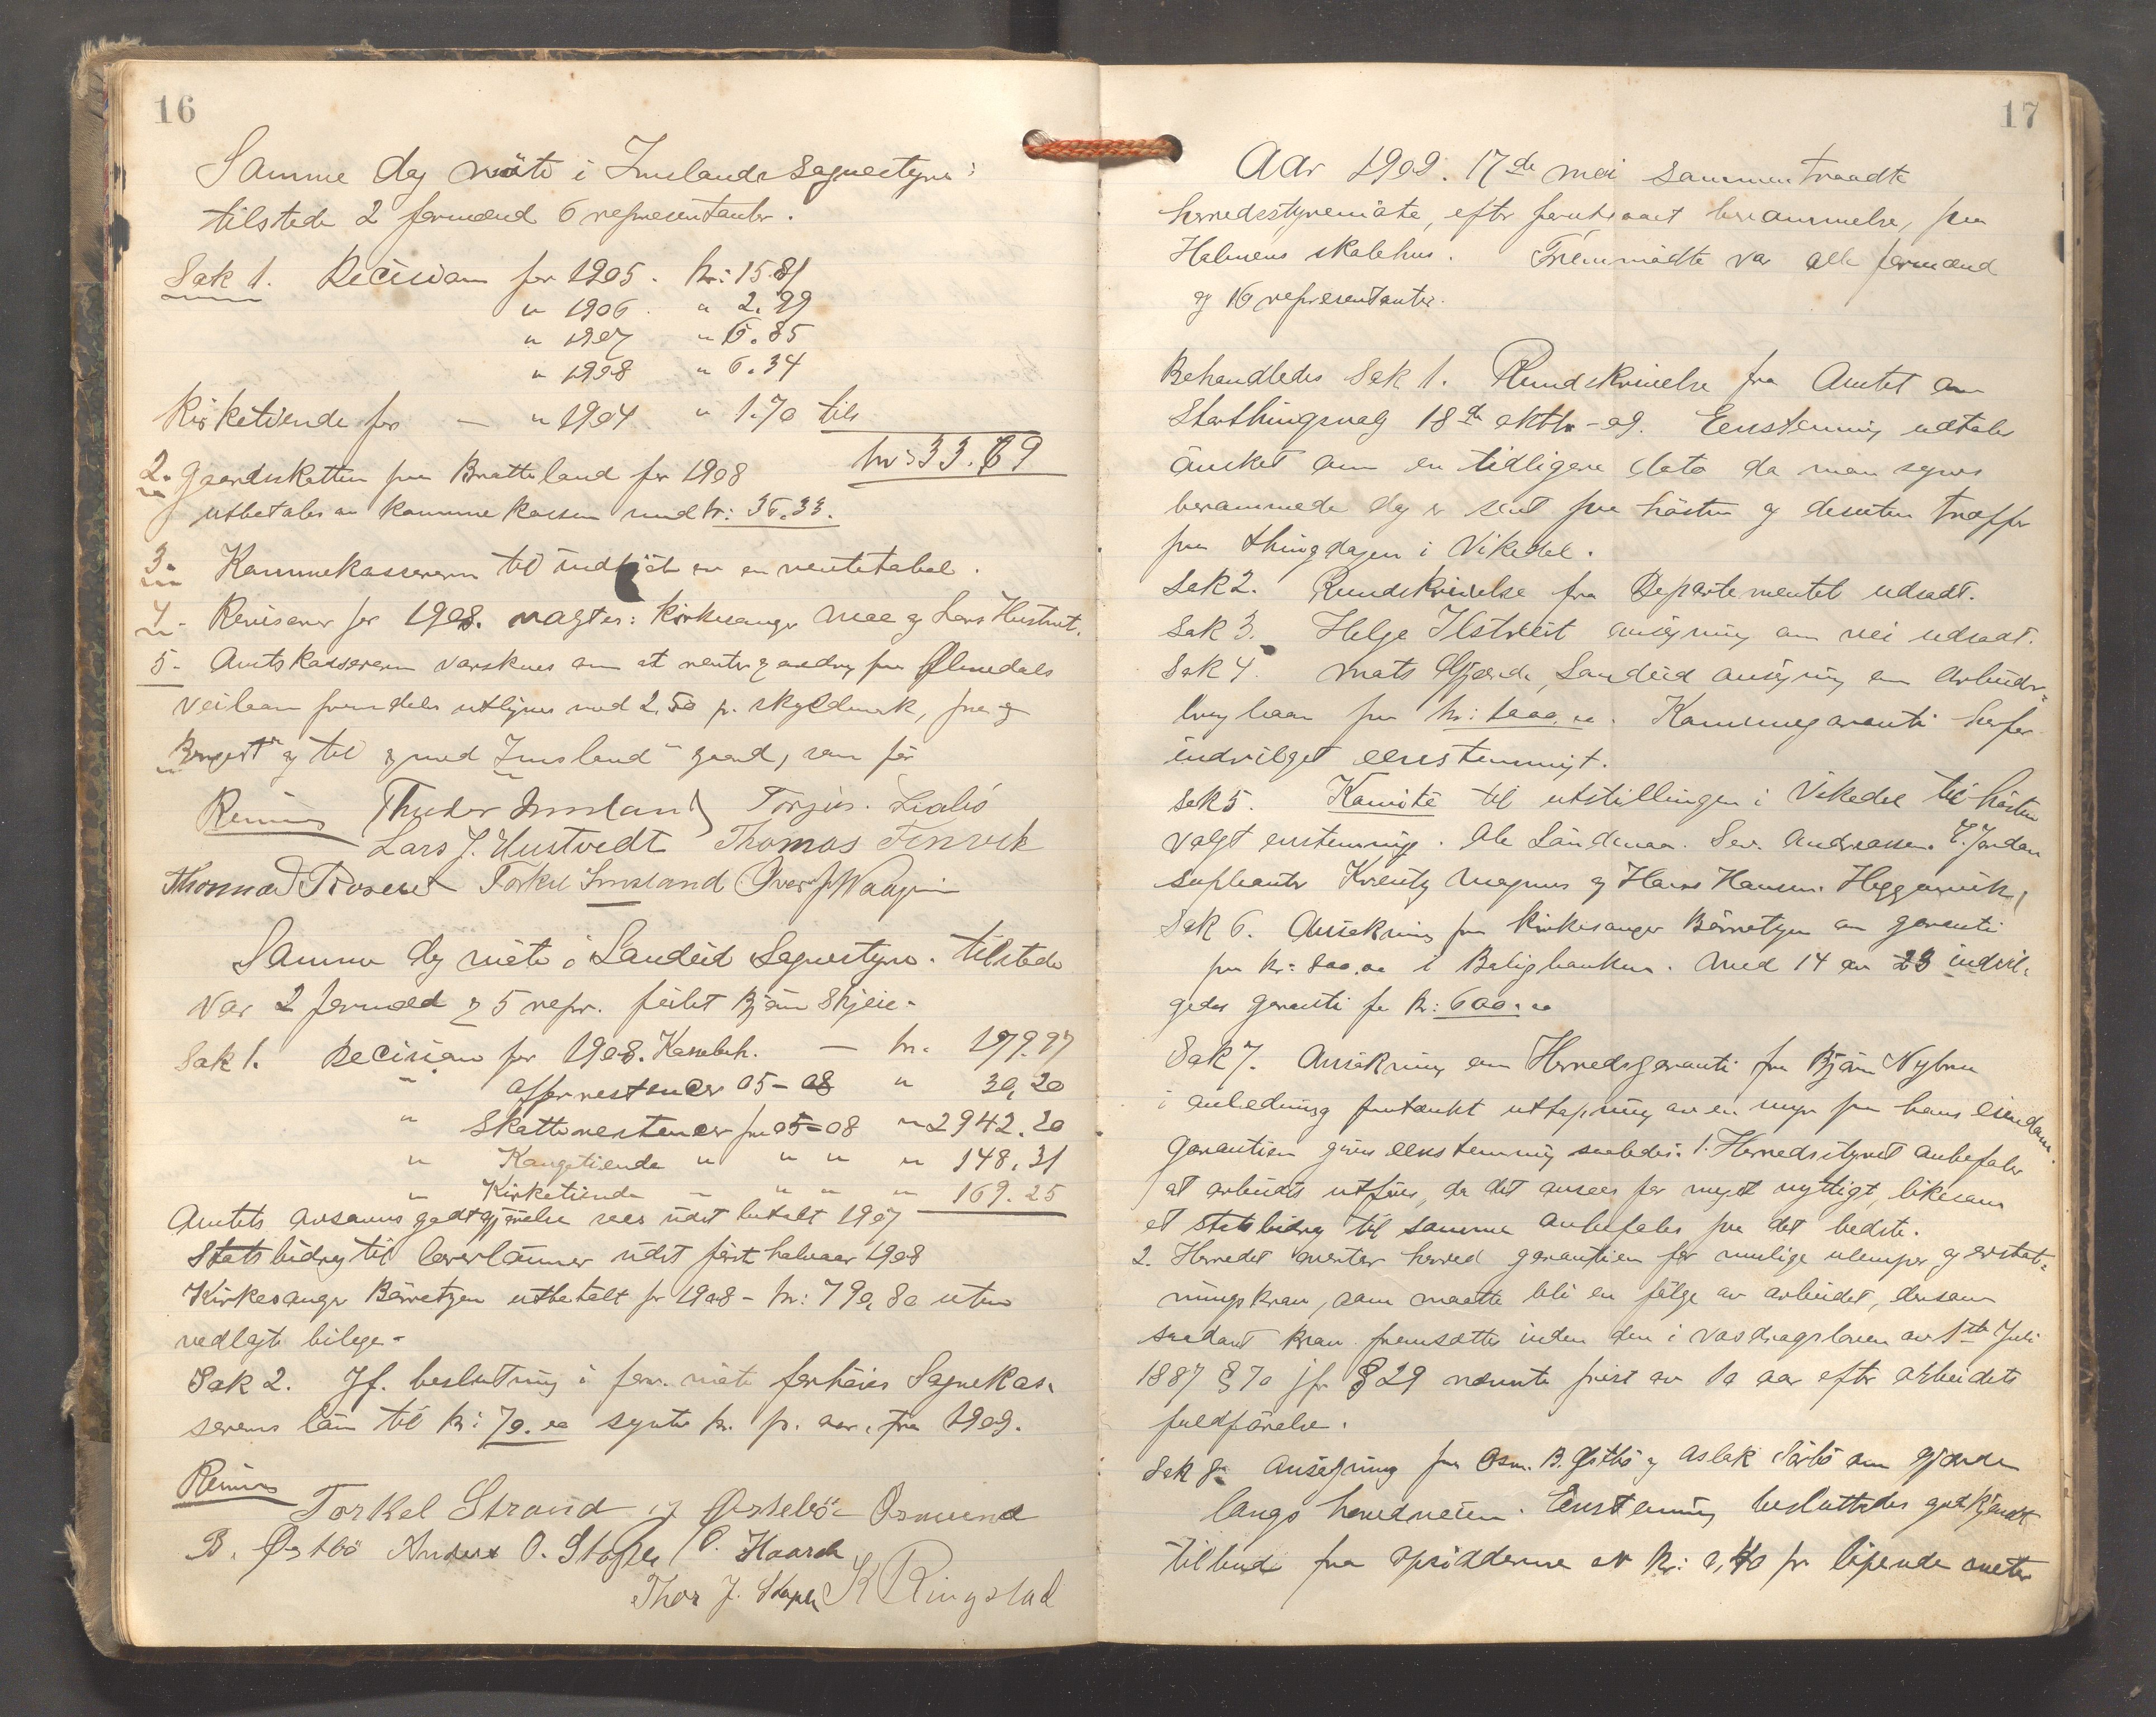 16
Samme dag møte i Imslands Sognestyre:
tilstede 2 formænd 6 representanter.
Sak 1. Decision for 1905. kr: 15.81
" 1906. " 2.99
" 1907 " 6.85
" 1908 " 6.34
Kirketiende for — " 1904 " 1.70 tils
kr: 33.69
2. Gaardsskatten paa Bratteland for 1908
utbetales av kommunekassen med kr: 36.33.
3. Kommunekassereren til indkjøb av en rentetabel.
4. Revisorer for 1908. valgtes: Kirkesanger Moe og Lars Hustvet.
5. Amtskassereren varskues om at renter og avdrag paa Ølmedals
veilaan fremdeles utlignes med 2.50 pr. skyldmark, fra og
til og med Imsland gaard, som før
Thuder Imsland Torjus. Lialiö
Lars J. Hustvedt Thomas Finvik
Thomas Torkel Imsland
Samme dag møte i Sandeid Sognestyre. tilstede
var 2 formænd og 5 repr. feilet Bjørn Skjeie.
Sak 1. Decision for 1908. Kassebeh. — kr. 179.97
" offerrestancer 05–08 " 30,20
" Skatterestancer fra 05–08 " 2942.20
" Kongetiende " " " " 148.31
" Kirketiende " " " " 169.25
Amtets avsavnsgodtgjørelse sees sidst betalt 1907
Statsbidrag til lærerlønner sidst første halvaar 1908
Kirkesanger Børretzen utbetalt for 1908 – kr: 790,80 uten
vedlagte bilage.
Sak 2. Jf. beslutning i forr. møte forhøies Sognekas-
serens løn til kr: 70.00 sytti kr. p. aar, fra 1909.
Torkel Strand Østebö Osmund
B. Østbö Anders O. Stople O. Haarde
Thor J. Stople K Ringstad
17
Aar 1909. 17de mai sammentraadte
herredsstyremøte, efter forutgaaet berammelse, paa
Halmens skolehus. Fremmødte var alle formænd
og 16 representanter.
Behandledes Sak 1. Rundskrivelse fra Amtet om
Storthingsvalg 18de oktbr. 09. Eenstemmig uttales
ønsket om en tidligere dato da man synes
berammede dag er sent paa høsten og desuten træffer
paa thingdagen i Vikedal.
Sak 2. Rundskrivelse fra Departementet udsadt.
Sak 3. Helge Ilstveit ansøgning om vei udsadt.
Sak 4. Mats Gjærde, Sandeid ansøgning om Arbeider-
bruglaan paa kr: 1000.00. Kommunegaranti herfor
indvilget eenstemmigt.
Sak 5. Komité til utstillingen i Vikedal til høsten
valgt enstemmig. Ole Landmaa. Sev. Andreassen. T. Jordan
supleanter Krentz Magnus og Hans Hansen Heggarvik,
Sak 6. Ansøkning fra Kirkesanger Børretzen om garanti
for kr: 800.00 i Boligbanken. Med 14 av 23 indvil-
gedes garanti for kr: 600.00
Sak 7. Ansøkning om Herredsgaranti fra Bjørn Nybru
i anledning paatænkt uttapning av en myr paa hans eiendom.
Garantien gives eenstemmig saaledes: 1. Herredsstyret anbefaler
at arbeidet utføres, da det ansees for meget nyttigt, likesom
et statsbidrag til samme anbefales paa det bedste.
2. Herredet overtar herved garantien for mulige ulemper og erstat-
ningskrav, som maatte bli en følge av arbeidet, dersom
saadant krav fremsættes inden den i Vasdragsloven av 1ste Juli
1887 § 70 jfr § 29 nævnte frist av 10 aar efter arbeidets
fuldførelse.
Sak 8. Ansøgning fra Osm. B. Østbö og Aslak Sørbö om gjærde
langs herredsveien. Eenstemmig besluttedes godkjendt
tilbud fra opsidderne av kr: 0,40 pr løpende meter